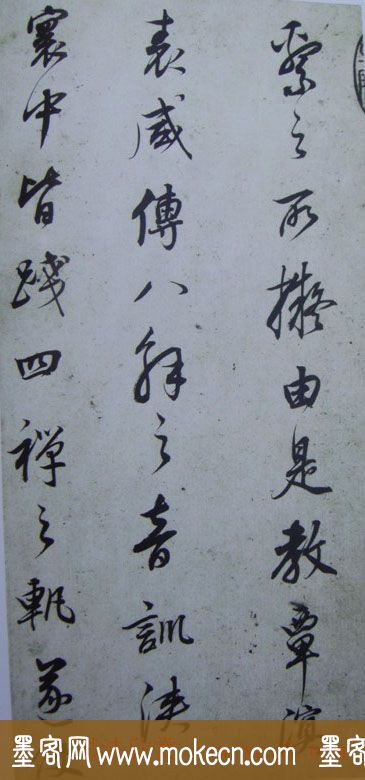 繫之所擬由是教覃溟
表咸傳八解之音訓浹
寰中皆踐四禪之軌遂
墨客网 www.mokecn.com 墨客